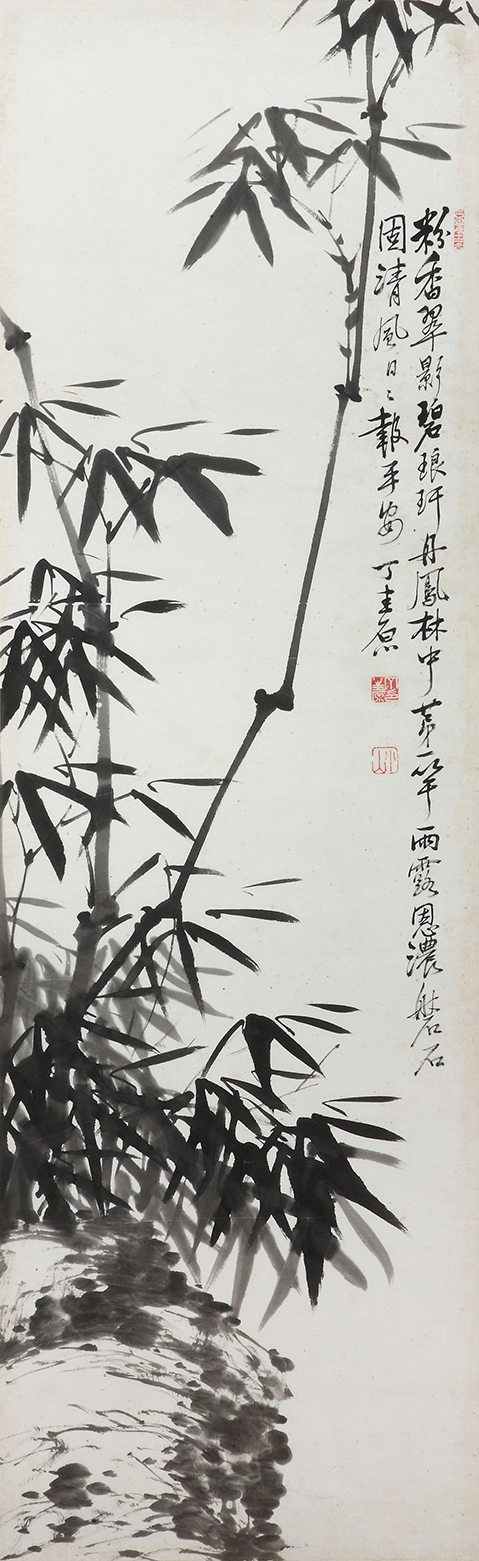 粉香翠影碧琅玕丹鳳林中第一竿雨露恩濃磐石
固清風日日報平安 丁圭原